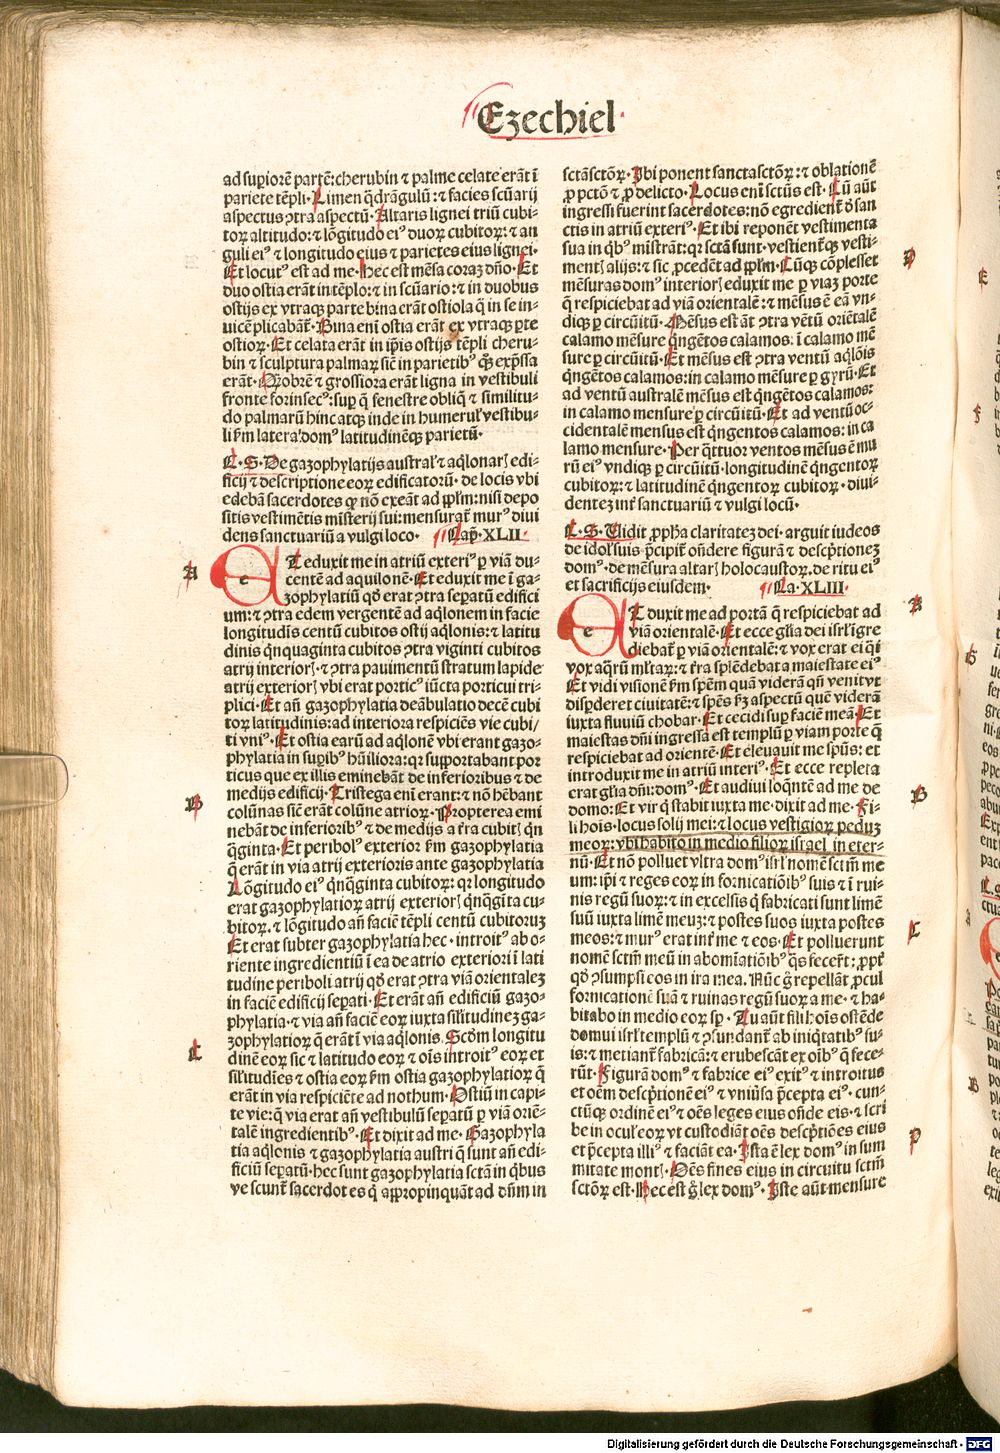 Ezechiel·
ad supiorē partē: cherubin ⁊ palme celate erāt ī
pariete tēpli· Limen q̄drāgulū: ⁊ facies scūarij
aspectus ꝯtra aspectū· Altaris lignei triū cubi-
toꝝ altitudo: ⁊ lōgitudo eiꝰ duoꝝ cubitoꝝ: ⁊ an
guli eiꝰ ⁊ longitudo eius ⁊ parietes eius lignei·
Et locutꝰ est ad me· Hec est mēsa coraꝫ dño· Et
duo ostia erāt in tēplo: ⁊ in scūario: ⁊ in duobus
ostijs ex vtraqꝫ parte bina erāt ostiola q̄ in se in-
uicē plicabāt̄· Bina eni ostia erāt ex vtraqꝫ pte
ostioꝝ· Et celata erāt in ip̄is ostijs tēpli cheru-
bin ⁊ sculptura palmaꝝ sic̄ in parietibꝰ q̄ꝫ exp̄ssa
erāt· Qobrē ⁊ grossiora erāt ligna in vestibuli
fronte forinsecꝰ: sup q̄ fenestre obliq̄ ⁊ similitu-
do palmarū hinc atqꝫ inde in humerul̕ vestibu-
li ẜm latera domꝰ latitudinēqꝫ parietū·
L·S· De gazophylatijs austral̕ ⁊ aq̇lonarꝭ edi-
ficij ⁊ descriptione eoꝝ edificatorū· de locis vbi
edebāt sacerdotes qꝛ nō exeāt ad pp̄lm: nisi depo
sitis vestimētis misterij sui: mensurat̄ murꝰ diui
dens sanctuariū a vulgi loco· Cap̄·XLII·
A
e
Et eduxit me in atriū exteriꝰ p viā du-
centē ad aquilonē· Et eduxit me ī ga-
zophylatiū qđ erat ꝯtra sepatū edifici
um: ⁊ ꝯtra edem vergentē ad aq̇lonem in facie
longitudīs centū cubitos ostij aq̇lonis: ⁊ latitu
dinis qnquaginta cubitos ꝯtra viginti cubitos
atrij interiorꝭ· ⁊ ꝯtra pauimentū stratum lapide
atrij exteriorꝭ vbi erat porticꝰ iūcta porticui tri-
plici· Et añ gazophylatia deābulatio decē cubi
toꝝ latitudinis: ad interiora respiciēs vie cubi/
ti vniꝰ· Et ostia earū ad aq̇lonē vbi erant gazo-
phylatia in supibꝰ hūiliora: qꝛ supportabant por
ticus que ex illis eminebāt de inferioribus ⁊ de
medijs edificij· Tristega eni erant: ⁊ nō hēbant
B
colūnas sic̄ erāt colūne atrioꝝ· Propterea emi
nebāt de inferioribꝰ ⁊ de medijs a tr̄ra cubitꝭ qn
q̄ginta· Et peribolꝰ exterior ẜm gazophylatia
q̄ erāt in via atrij exterioris ante gazophylatia
Lōgitudo eiꝰ qnq̄ginta cubitoꝝ: qꝛ longitudo
erat gazophylatioꝝ atrij exteriorꝭ qnq̄gita cu-
bitoꝝ. ⁊ lōgitudo añ faciē tēpli centū cubitoruꝫ
Et erat subter gazophylatia hec· introitꝰ ab o-
riente ingredientiū ī ea de atrio exteriori ī lati
tudine periboli atrij qđ erat ꝯtra viā orientaleꝫ
in faciē edificij sepati· Et erāt añ edificiū gazo-
phylatia· ⁊ via añ faciē eoꝝ iuxta sil̕itudineꝫ ga-
zophylatioꝝ q̄ erāt ī via aq̇lonis· Scđm longitu
C
dinē eoꝝ sic ⁊ latitudo eoꝝ ⁊ oīs introitꝰ eoꝝ et
sil̕itudīes ⁊ ostia eoꝝ ẜm ostia gazophylatioꝝ q̄
erāt in via respiciēte ad nothum· Ostiū in capi-
te vie: q̄ via erat añ vestibulū sepatū p viā oriē-
talē ingredientibꝰ· Et dixit ad me· Gazophyla
tia aq̇lonis ⁊ gazophylatia austri q̄ sunt añ edi-
ficiū sepatū· hec sunt gazophylatia sctā in q̇bus
vescunt̄ sacerdotes q̇ appropinquāt ad dūm in
sctāsctōꝝ· Ibi ponent sanctasctōꝝ: ⁊ oblationē
ꝓ pctō ⁊ ꝓ delicto· Locus eni sctūs est· Cū aūt
ingressi fuerint sacerdotes: nō egredient̄ ð san
ctis in atriū exteriꝰ· Et ibi reponēt vestimenta
sua in q̇bꝰ mīstrāt: qꝛ sctā sunt· vestient̄qꝫ vesti-
D
mentꝭ alijs: ⁊ sic ꝓcedēt ad pp̄lm· Cūqꝫ cōplesset
mēsuras domꝰ interiorꝭ eduxit me p viaꝫ porte
q̄ respiciebat ad viā orientalē: ⁊ mēsus ē eā vn-
diqꝫ p circūitū· Mēsus est āt ꝯtra vētū oriētalē
calamo mēsure qngētos calamos: ī calamo mē
sure p circūitū· Et mēsus est ꝯtra ventū aq̇lōis
qngētos calamos: in calamo mēsure p gyrū· Et
ad ventū australē mēsus est qngētos calamos:
in calamo mensure p circūitū· Et ad ventū oc-
cidentalē mensus est qngentos calamos: in ca
lamo mensure· Per qttuor ventos mēsus ē mu
rū eiꝰ vndiqꝫ p circūitū· longitudinē qngentoꝝ
cubitoꝝ: ⁊ latitudinē qngentoꝝ cubitoꝝ· diui-
dentez int̄ sanctuariū ⁊ vulgi locū·
L·S· Uidit ꝓpħa claritateꝫ dei· arguit iudeos
de idol̕ suis p̄cipit̄ on̄dere figurā ⁊ descp̄tioneꝫ
domꝰ· de mēsura altarꝭ holocaustoꝝ. de ritu eiꝰ
et sacrificijs eiusdem· Ca·XLIII·
A
e
Et duxit me ad portā q̄ respiciebat ad
viā orientalē· Et ecce gl̄ia dei isrl̕ īgre
diebat̄ p viā orientalē: ⁊ vox erat ei q̇si
vox aq̄rū ml̕taꝝ: ⁊ tr̄ra splēdebat a maiestate eiꝰ
Et vidi visionē ẜm spēm quā viderā qñ venit vt
disp̄deret ciuitatē: ⁊ spēs ẜꝫ aspectū quē viderā
iuxta fluuiū chobar· Et cecidi sup faciē meā· Et
maiestas dñi ingressa est templū p viam porte q̄
respiciebat ad orientē· Et eleuauit me spūs: et
introduxit me in atriū interiꝰ· Et ecce repleta
B
erat gl̄ia dñi: domꝰ· Et audiui loqntē ad me de
domo: Et vir q̇ stabat iuxta me· dixit ad me· Fi-
li hoīs· locus solij mei: ⁊ locus vestigioꝝ peduꝫ
meoꝝ: vbi habito in medio filioꝝ israel in eter-
nū· Et nō polluet vltra domꝰ isrl̕ nomē sctm̄ me
um: ip̄i ⁊ reges eoꝝ in fornicatiōibꝰ suis ⁊ ī rui-
nis regū suoꝝ: ⁊ in excelsis q̇ fabricati sunt limē
suū iuxta limē meuꝫ: ⁊ postes suos iuxta postes
C
meos: ⁊ murꝰ erat int̄ me ⁊ eos· Et polluerunt
nomē sctm̄ meū in abomīatiōibꝰ q̄s fecer̄t: ꝓpt̄
qđ ꝯsumpsi eos in ira mea. Nūc ḡ repellāt ꝓcul
fornicationē suā ⁊ ruinas regū suoꝝ a me· ⁊ ha-
bitabo in medio eoꝝ sꝑ· Tu aūt fili hoīs ostēde
domui isrl̕ templū ⁊ ꝯfundant̄ ab iniq̇tatibꝰ su-
is: ⁊ metiant̄ fabricā: ⁊ erubescāt ex oībꝰ q̄ fece-
rūt· Figurā domꝰ ⁊ fabrice eiꝰ exitꝰ ⁊ introitus
et oēm descp̄tionē eiꝰ ⁊ vniūsa p̄cepta eiꝰ· cun-
ctūqꝫ ordinē eiꝰ ⁊ oēs leges eius on̄de eis· ⁊ scri
D
be in ocul̕ eoꝝ vt custodiāt oēs descp̄tiōes eius
et p̄cepta illiꝰ ⁊ faciāt ea· Ista ē lex domꝰ in sum
mitate montꝭ· Oēs fines eius in circuitu sctm̄
sctōꝝ est· Hec est ḡ lex domꝰ· Iste aūt mensure
Digitalisierung gefördert durch die Deutsche Forschungsgemeinschaft - DFG